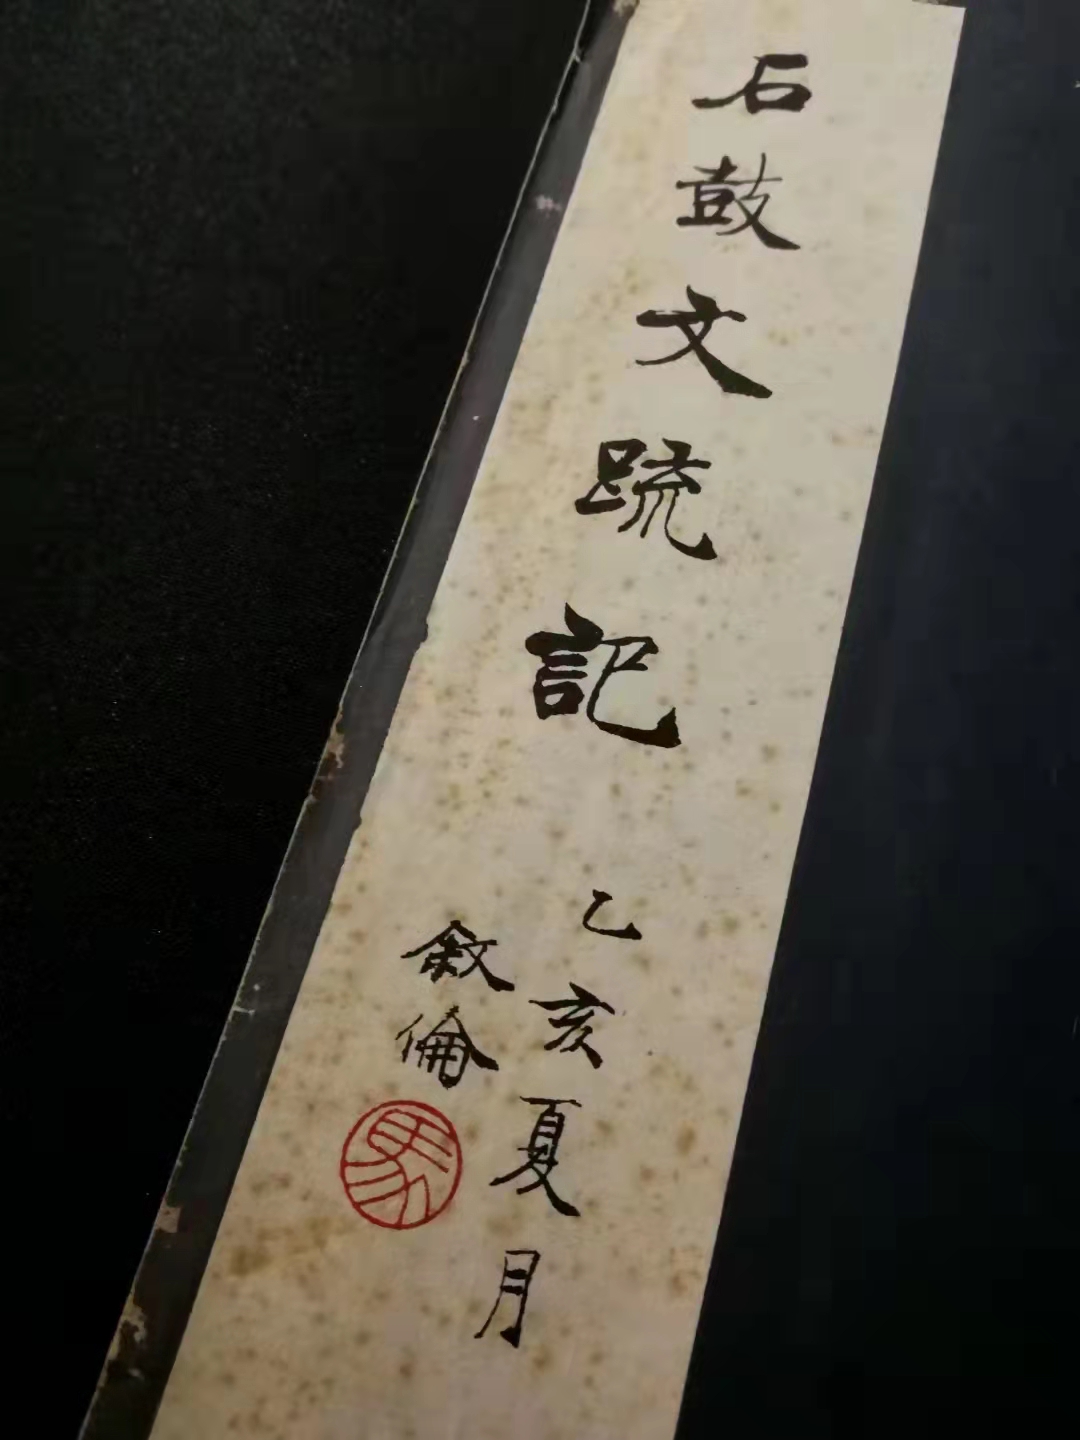 石鼓文疏記
乙亥夏月
敘倫
馬